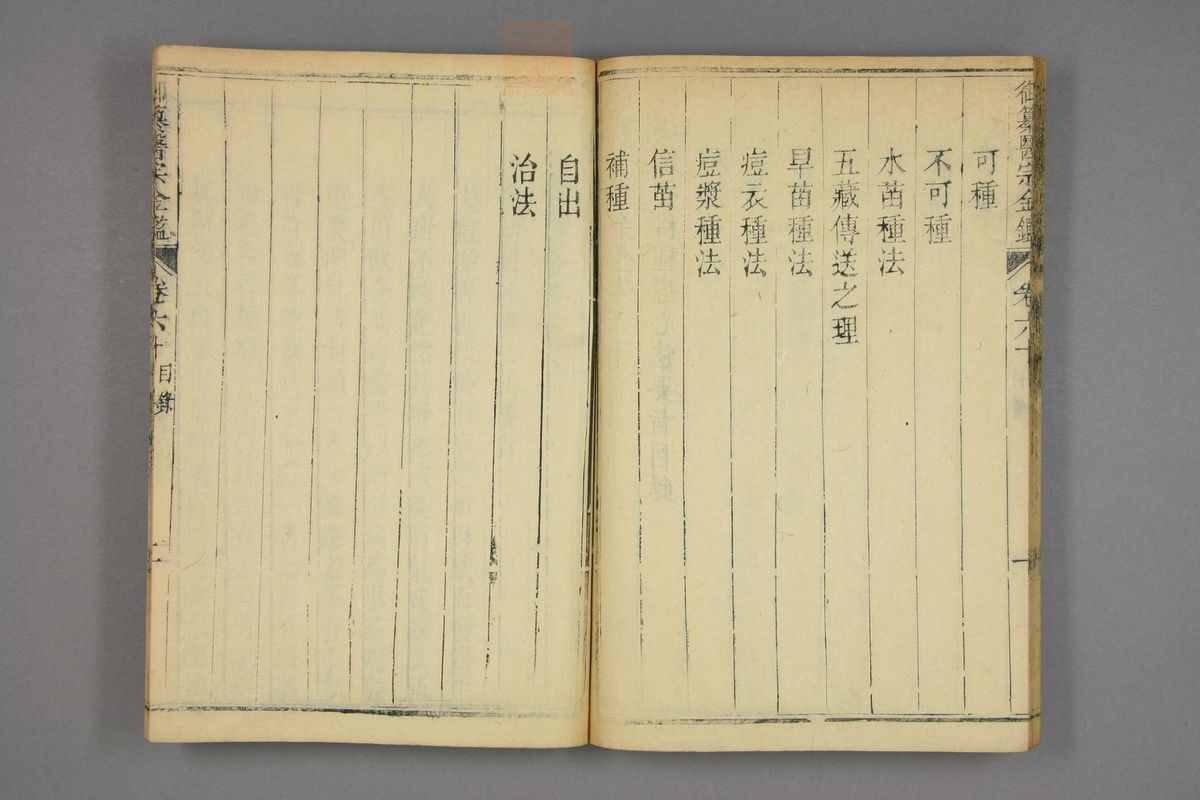 御纂醫宗金鑑 卷六十 一
可種
不可種
水苗種法
五藏傳送之理
旱苗種法
痘衣種法
痘漿種法
信苗
補種
自出
治法
纂醫宗金鑑 卷六十 目錄 二